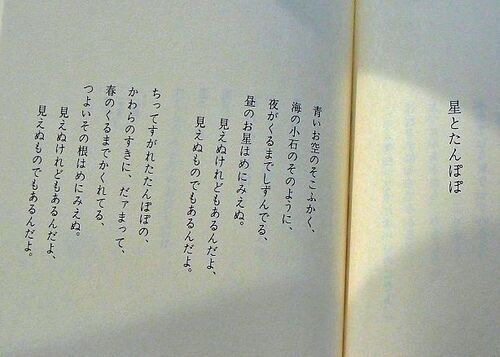 星とたんぽぽ
青いお空のそこふかく、
海の小石のそのように、
夜がくるまでしずんでる、
昼のお星はめにみえぬ。
見えぬけれどもあるんだよ、
見えぬものでもあるんだよ。
ちってすがれたたんぽぽの、
かわらのすきに、だァまって、
春のくるまでかくれてる、
つよいその根はめにみえぬ。
見えぬけれどもあるんだよ、
見えぬものでもあるんだよ。